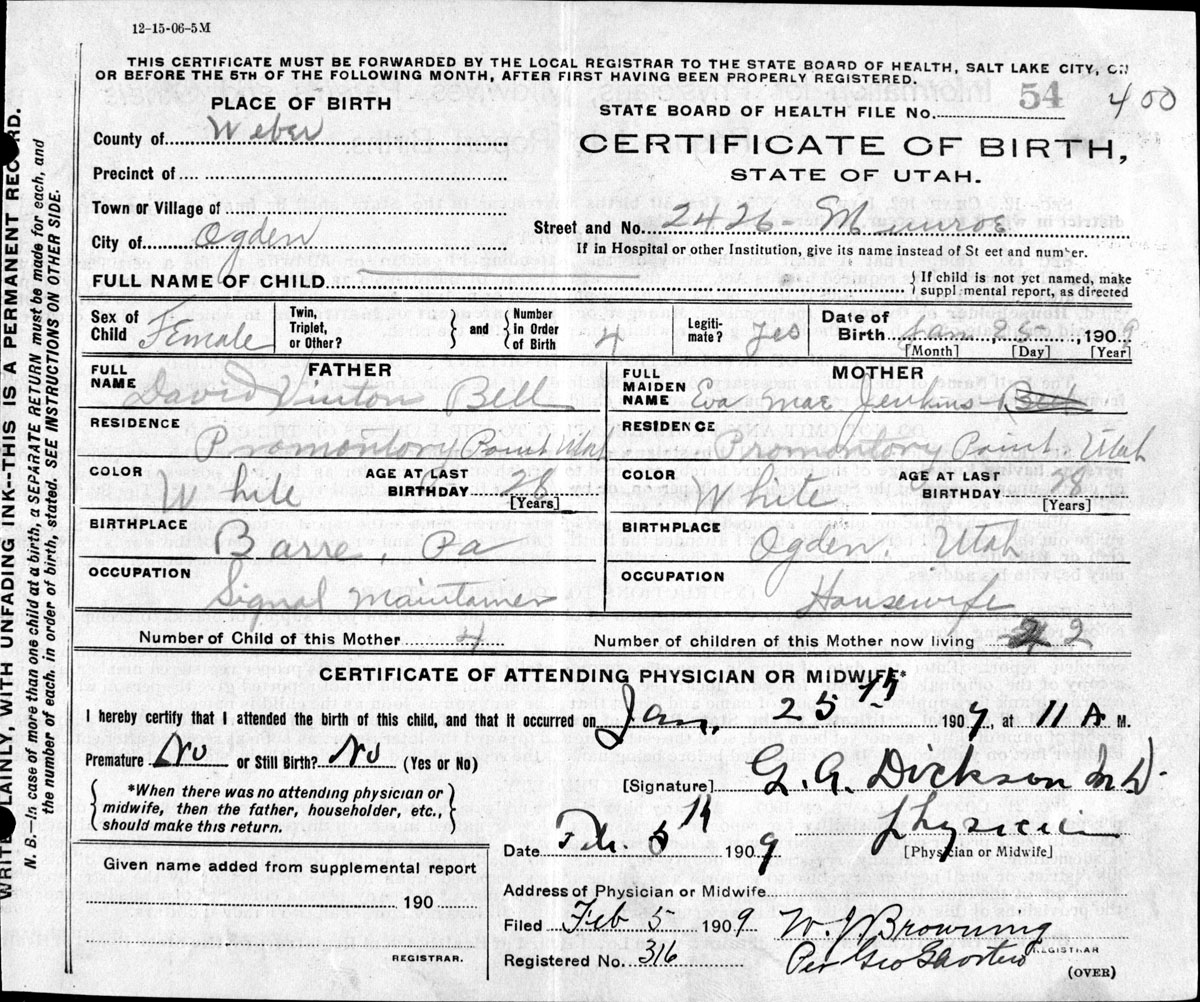 12-15-06-5M
THIS CERTIFICATE MUST BE FORWARDED BY THE LOCAL REGISTRAR TO THE STATE BOARD OF HEALTH, SALT LAKE CITY, ON
OR BEFORE THE 5TH OF THE FOLLOWING MONTH, AFTER FIRST HAVING BEEN PROPERLY REGISTERED.
PLACE OF BIRTH
STATE BOARD OF HEALTH FILE No. 54 400
County of Weber
CERTIFICATE OF BIRTH,
STATE OF UTAH.
Precinct of
Town or Village of
City of Ogden
Street and No. 2426 - Munroe
If in Hospital or other Institution, give its name instead of St eet and number.
FULL NAME OF CHILD
{ If child is not yet named, make suppl mental report, as directed
Sex of Child Female
Twin, Triplet, or Other? } and { Number in Order of Birth 4
Legitimate? Yes
Date of Birth Jan, 25, 1909
[Month] [Day] [Year]
FATHER
FULL NAME David Vinton Bell
RESIDENCE Promontory Point Utah
COLOR White
AGE AT LAST BIRTHDAY 26 [Years]
BIRTHPLACE Barre, Pa
OCCUPATION Signal Maintainer
MOTHER
FULL MAIDEN NAME Eva Mae Jenkins Bell
RESIDENCE Promontory Point, Utah
COLOR White
AGE AT LAST BIRTHDAY 28 [Years]
BIRTHPLACE Ogden, Utah
OCCUPATION Housewife
Number of Child of this Mother 4
Number of children of this Mother now living 2
CERTIFICATE OF ATTENDING PHYSICIAN OR MIDWIFE*
I hereby certify that I attended the birth of this child, and that it occurred on Jan, 25th 1909 at 11 A M.
Premature No or Still Birth? No (Yes or No)
[Signature] G. A. Dickson M.D.
{ *When there was no attending physician or midwife, then the father, householder, etc., should make this return. }
Date Feb. 5th 1909
Physician
[Physician or Midwife]
Given name added from supplemental report
190
REGISTRAR.
Address of Physician or Midwife
Filed Feb 5 1909 W. J. Browning
REGISTRAR
Registered No. 316 Per Geo
(OVER)
WRITE PLAINLY, WITH UNFADING INK--THIS IS A PERMANENT RECORD.
N. B.—In case of more than one child at a birth, a SEPARATE RETURN must be made for each, and
the number of each, in order of birth, stated. SEE INSTRUCTIONS ON OTHER SIDE.